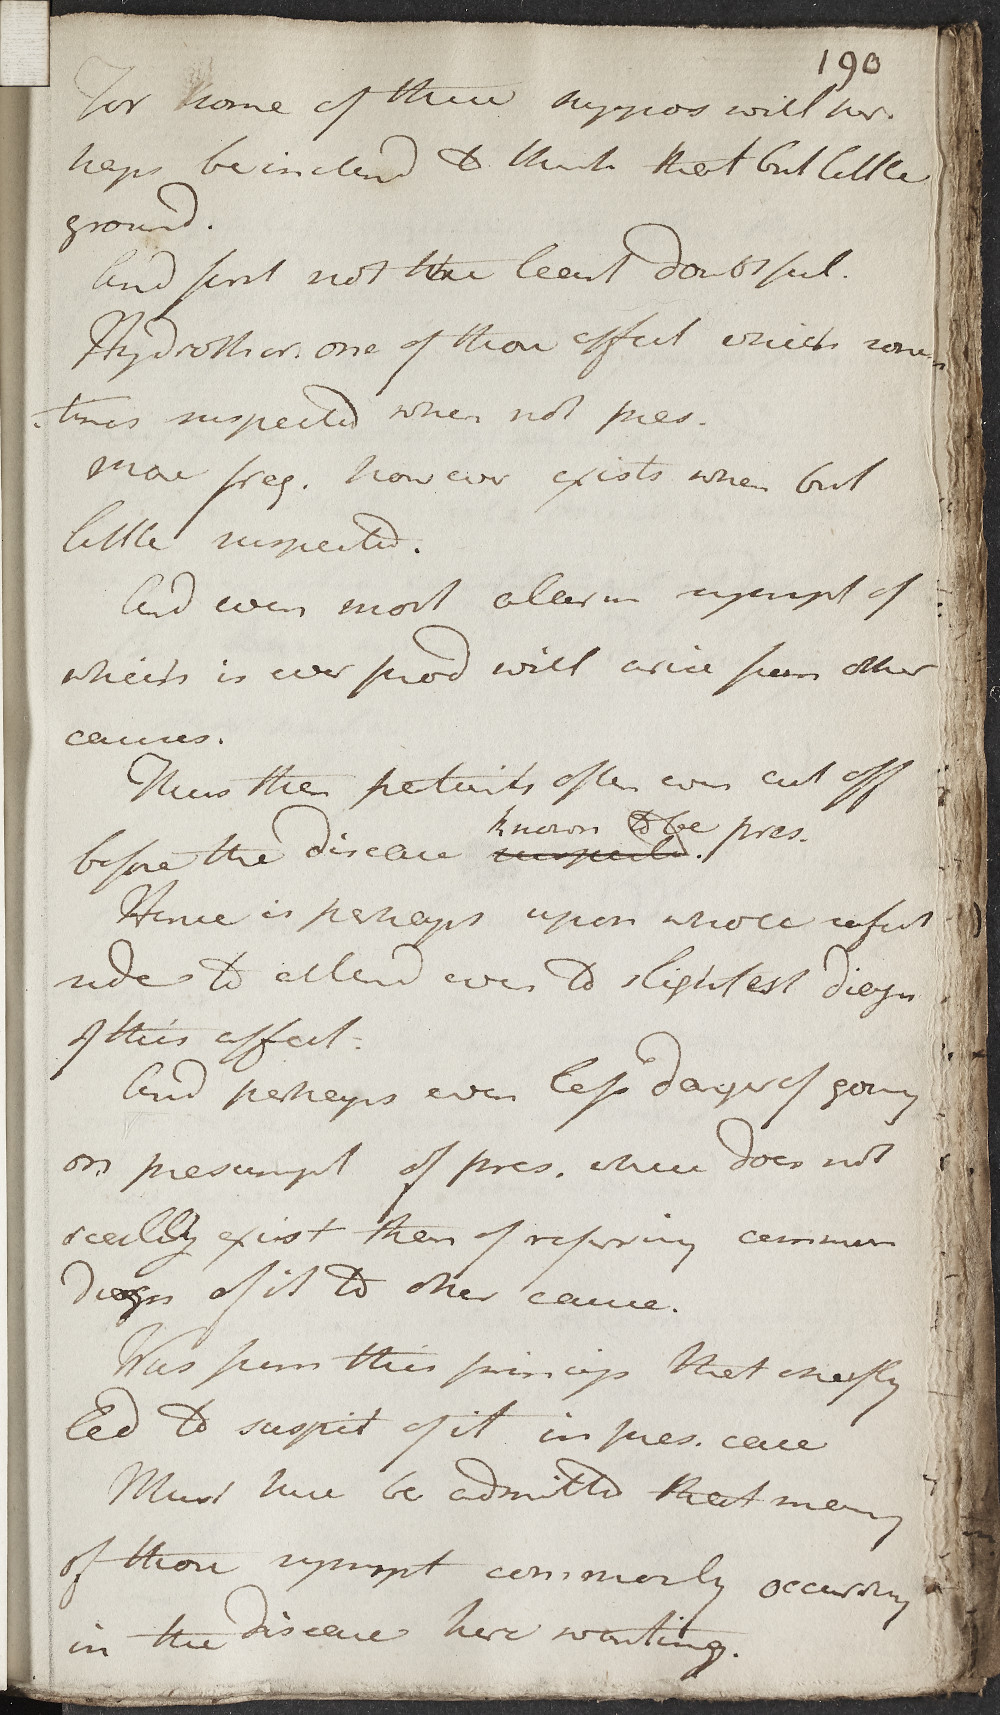 190
For some of these suppos will per-
haps be inclend to think that but little
ground.
And first not the least doubtful.
Hydrothor. one of those affect which some-
times suspected when not pres.
More freq. however exists when but
little suspected.
And even most alarm sympt of
which is ever prod will arise from other
causes.
Thus then patients often even cut off
before the disease suspected. known to be pres.
Hence is perhaps upon whole safest
side to attend even to slightest diagn
of this affect.
And perhaps even less danger of going
on presumpt of pres. where does not
really exist then of referring common
diagn of it to other cause.
Was from this princip that chiefly
led to suspit of it in pres. case
Must here be admitted that many
of those sympt commonly occurring
in the disease here wanting.